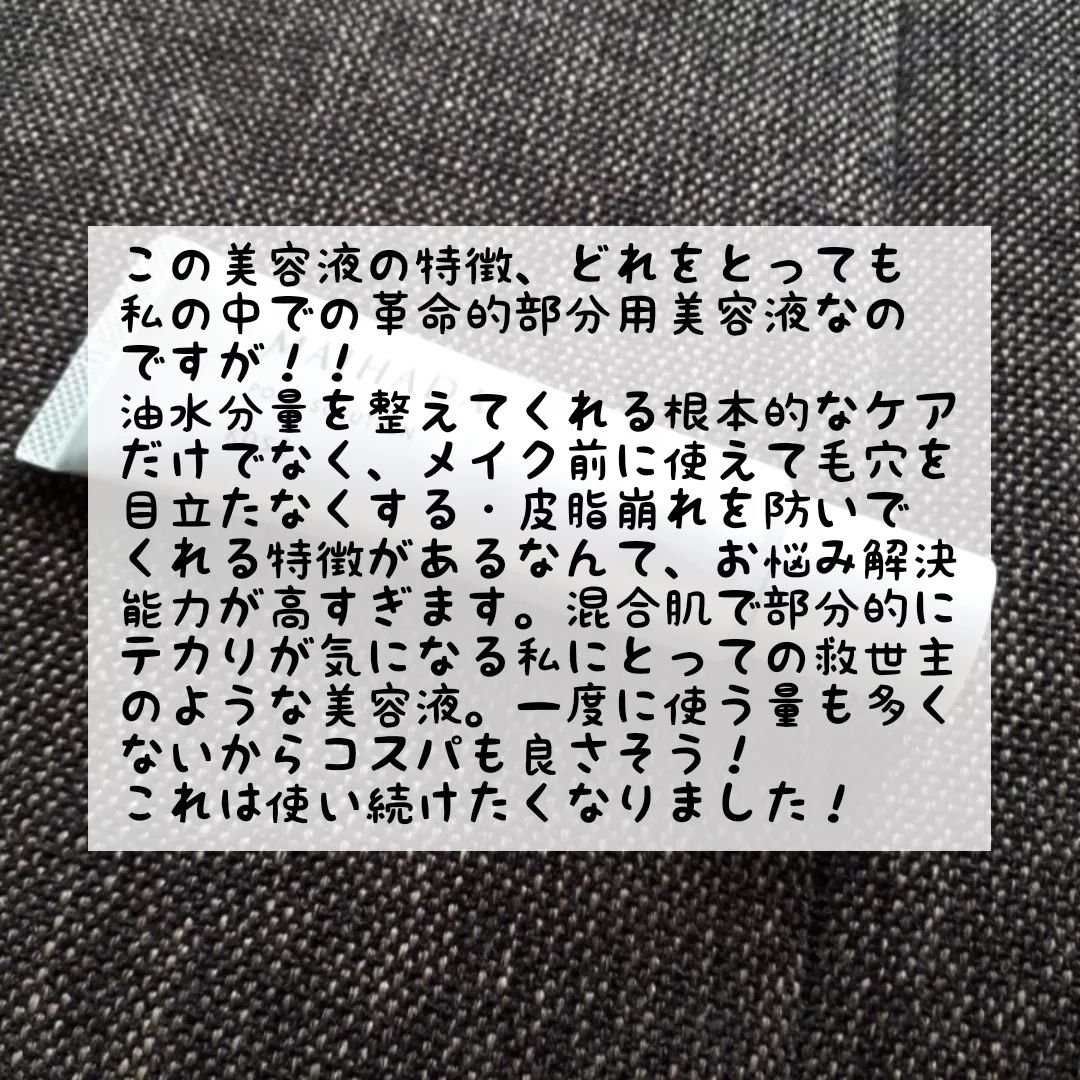 この美容液の特徴、どれをとっても
私の中での革命的部分用美容液なの
ですが！！
油水分量を整えてくれる根本的なケア
だけでなく、メイク前に使えて毛穴を
目立たなくする・皮脂崩れを防いで
くれる特徴があるなんて、お悩み解決
能力が高すぎます。混合肌で部分的に
テカりが気になる私にとっての救世主
のような美容液。一度に使う量も多く
ないからコスパも良さそう！
これは使い続けたくなりました！